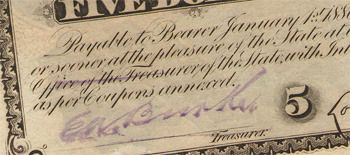 FIVE DO
Payable to Bearer January 1st. 188
or sooner at the pleasure of the State at
Office of the Treasurer of the State, with Int
as per Coupons annexed.
5
Treasurer.